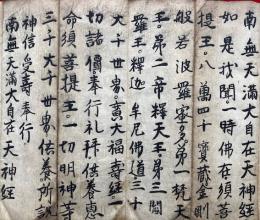 南無天滿大自在天神経
如是我聞一時佛在須菩
提王。八萬四十寶蔵金剛
般若波羅蜜多。第一梵天
王。第二帝釋天王第三閻
羅王。釋迦牟尼佛道三十
大千世界廣大福壽經一
切諸僧奉行礼拜供養恵
命須菩提王一切明神等
三千大千世界供養所説
神信受壽奉行
南無天滿大自在天神経